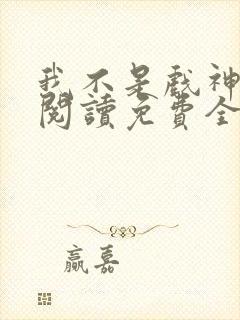 我不是戲神
閱讀免費全
贏嘉